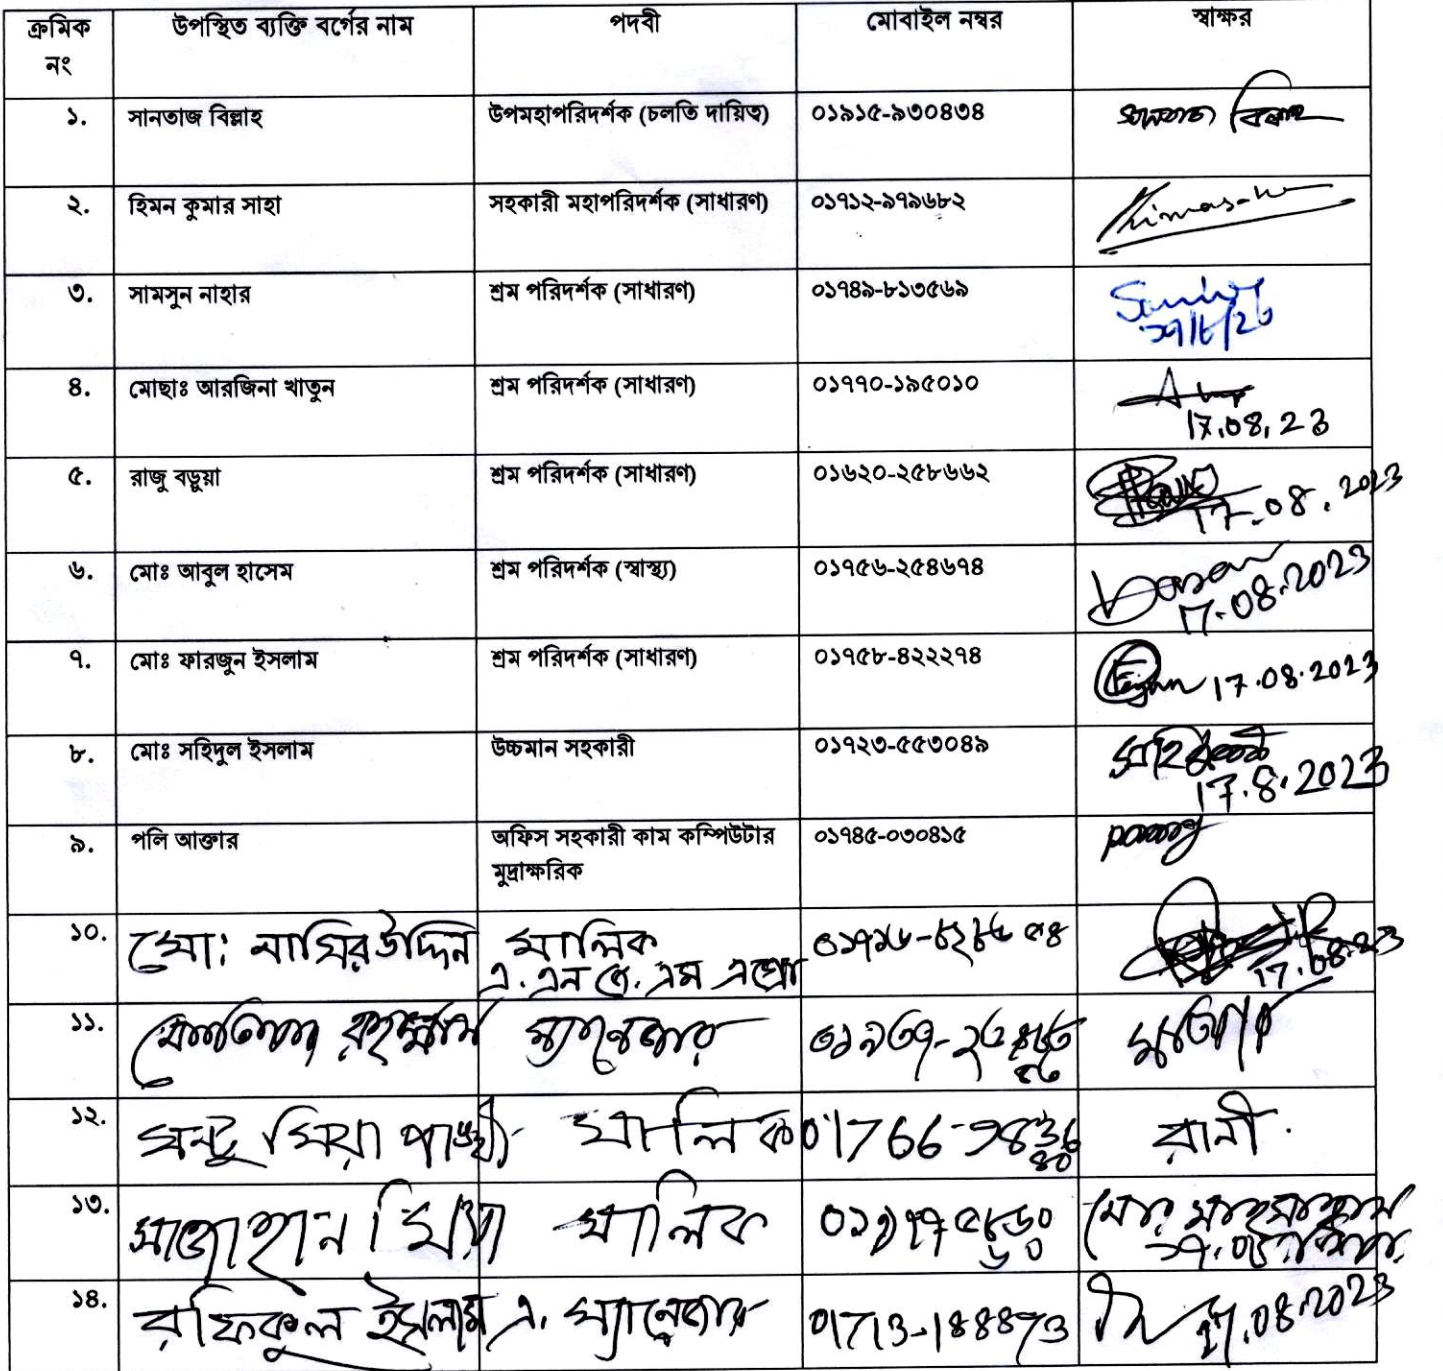 ক্রমিক নং উপস্থিত ব্যক্তি বর্গের নাম পদবী মোবাইল নম্বর স্বাক্ষর
১. সানতাজ বিল্লাহ উপমহাপরিদর্শক (চলতি দায়িত্ব) ০১৯১৫-৯৩০৪৩৪
২. হিমন কুমার সাহা সহকারী মহাপরিদর্শক (সাধারণ) ০১৭১২-৯৭৯৬৮২
৩. সামসুন নাহার শ্রম পরিদর্শক (সাধারণ) ০১৭৪৯-৮১৩৫৬৯
৪. মোছাঃ আরজিনা খাতুন শ্রম পরিদর্শক (সাধারণ) ০১৭৭০-১৯৫০১০ 17.08.23
৫. রাজু বড়ুয়া শ্রম পরিদর্শক (সাধারণ) ০১৬২০-২৫৮৬৬২ 17.08.2023
৬. মোঃ আবুল হাসেম শ্রম পরিদর্শক (স্বাস্থ্য) ০১৭৫৬-২৫৪৬৭৪ 17.08.2023
৭. মোঃ ফারজুন ইসলাম শ্রম পরিদর্শক (সাধারণ) ০১৭৫৮-৪২২২৭৪ 17.08.2023
৮. মোঃ সহিদুল ইসলাম উচ্চমান সহকারী ০১৭২৩-৫৫৩০৪৯ 17.8.2023
৯. পলি আক্তার অফিস সহকারী কাম কম্পিউটার মুদ্রাক্ষরিক ০১৭৪৫-০৩০৪১৫
১০. মো: নাসিরউদ্দিন মালিক 17.08.23
১১. রহমান ম্যানেজার
১২. মন্টু মিয়া মালিক রানী
১৩. সাজাহান মিয়া মালিক
১৪. রফিকুল ইসলাম এ. ম্যানেজার 01713-188873 17.08.2023